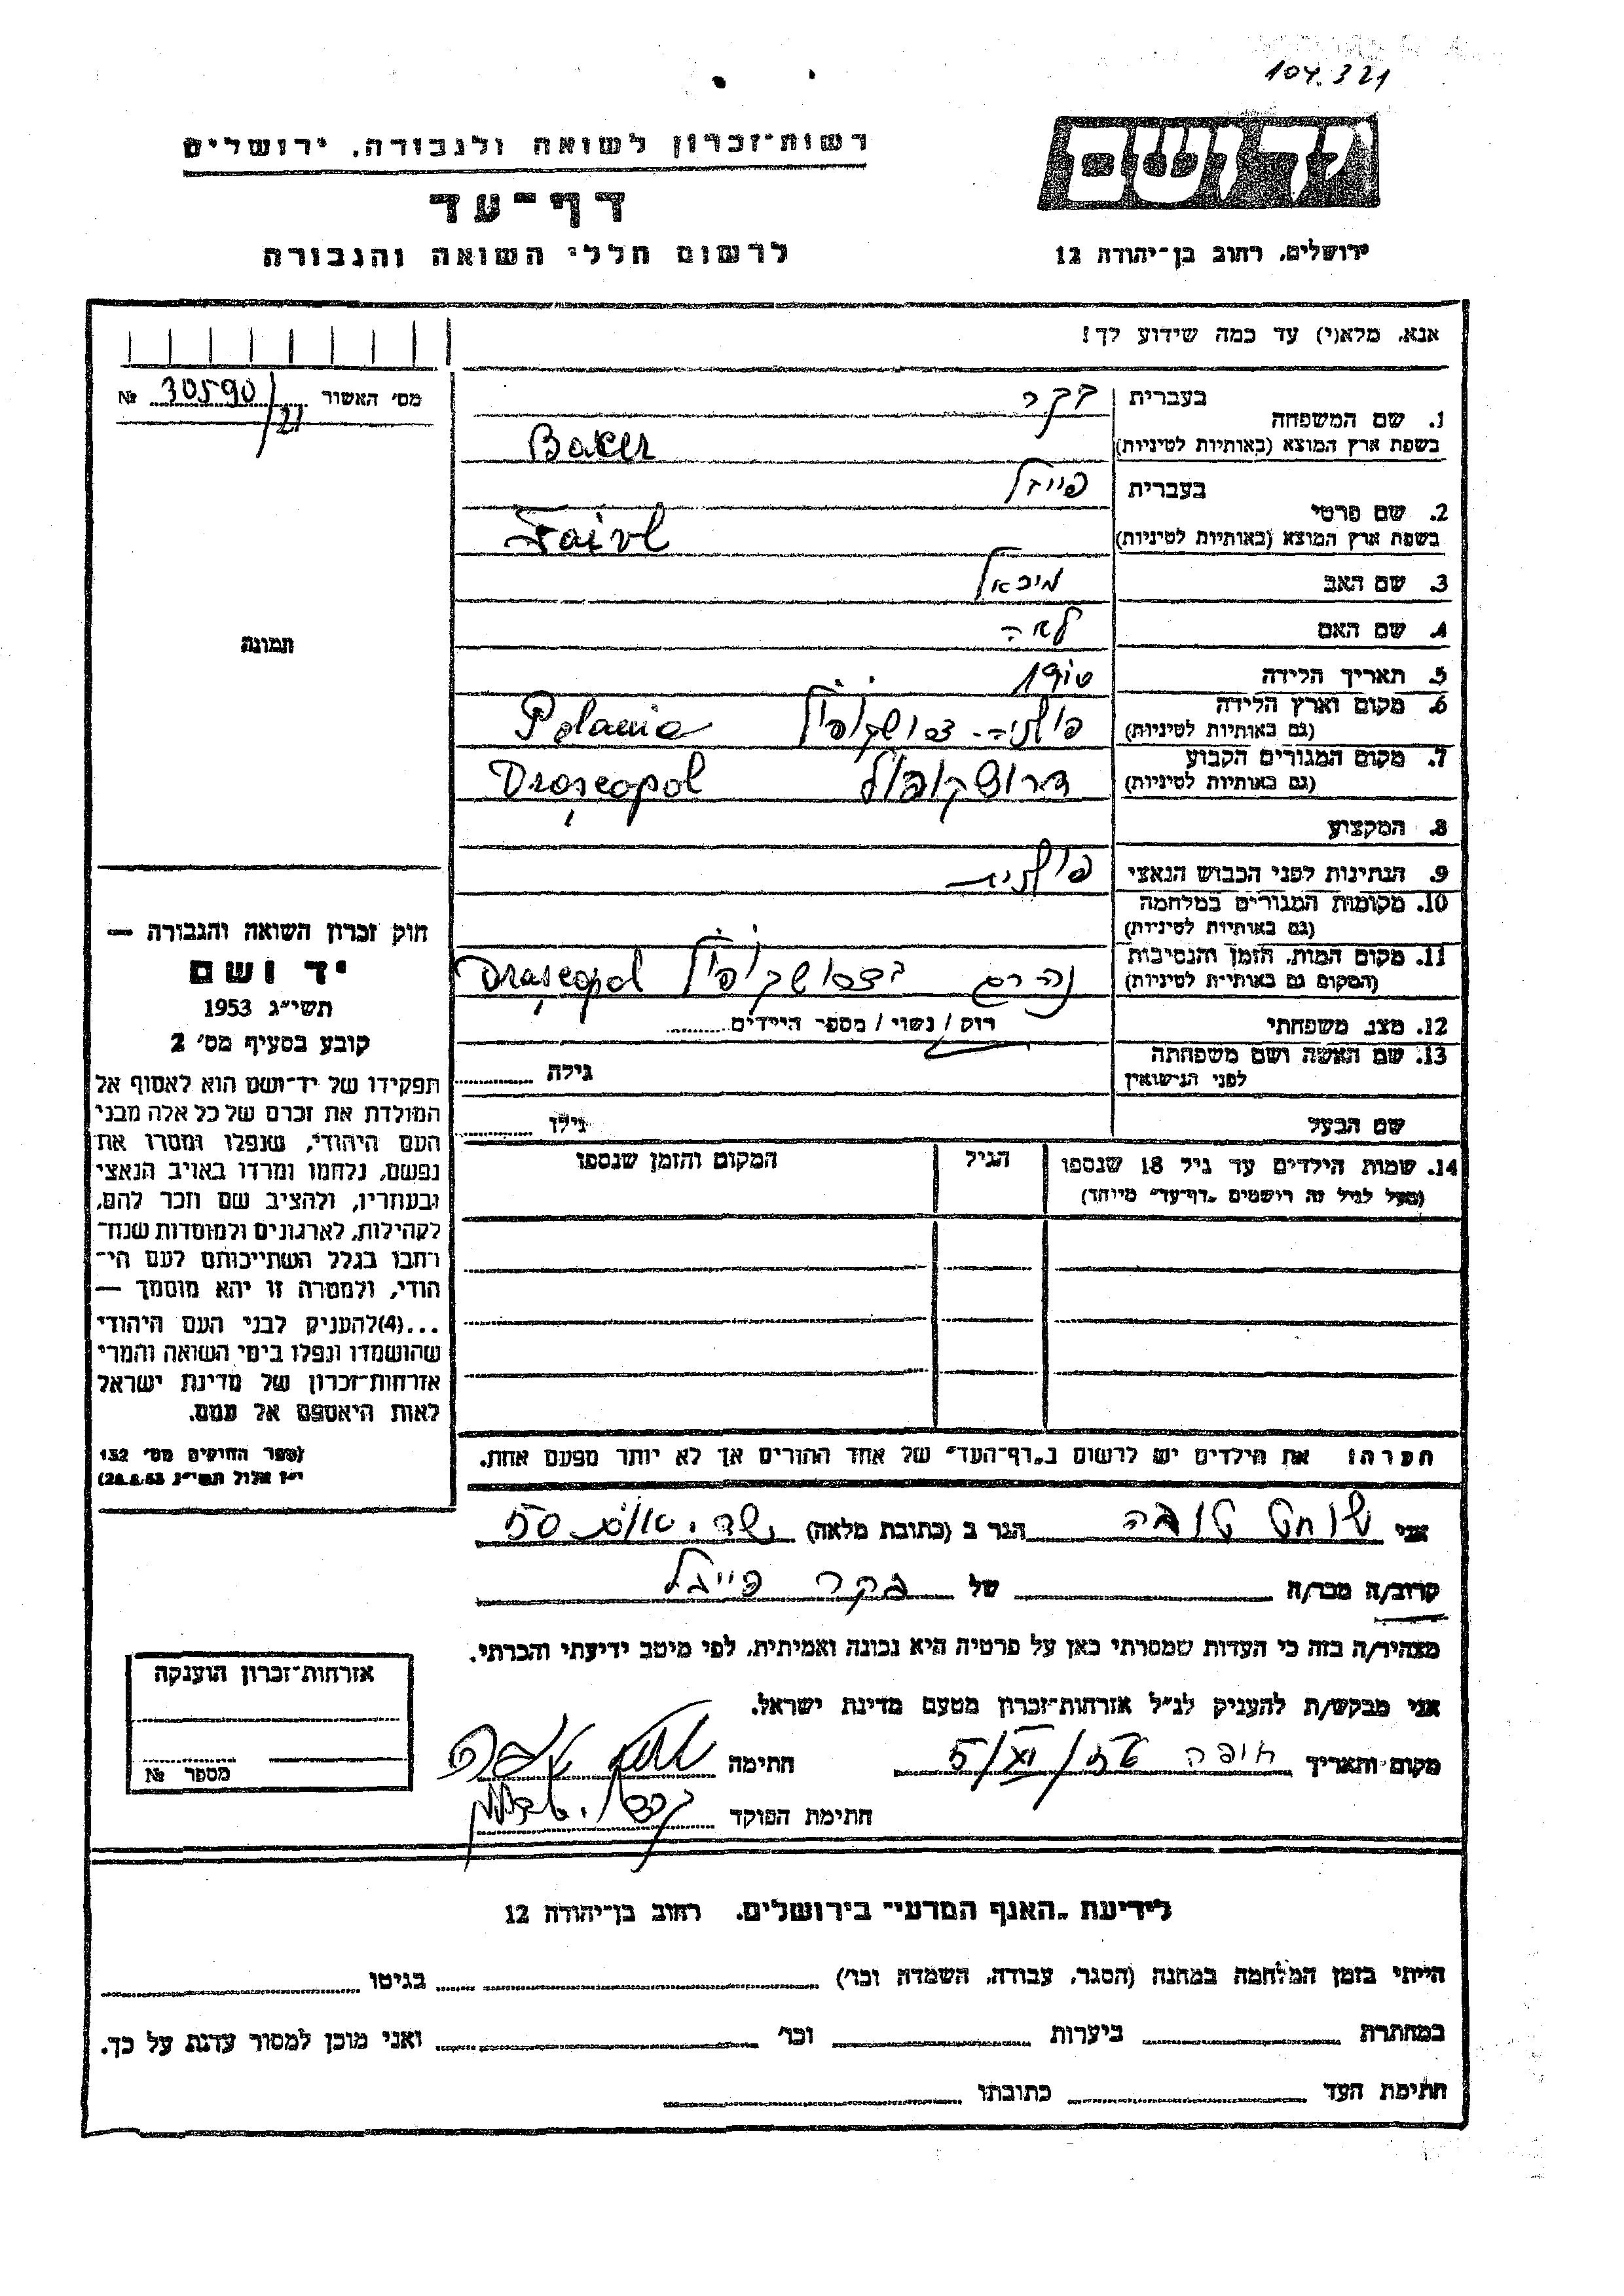 104.321
רשות־זכרון לשואה ולגבורה, ירושלים
דף־עד
לרשום חללי השואה והגבורה
יד ושם
ירושלים, רחוב בן־יהודה 12
אנא, מלא(י) עד כמה שידוע לך!
מס׳ האשור № 30590/21
1. שם המשפחה בעברית בקר
בשפת ארץ המוצא (באותיות לטיניות) Baker
2. שם פרטי בעברית פייבל
בשפת ארץ המוצא (באותיות לטיניות) Faivl
3. שם האב מיכאל
4. שם האם לאה
5. תאריך הלידה
6. מקום וארץ הלידה
(גם באותיות לטיניות) Polania
7. מקום המגורים הקבוע דרושקופול Droşcopol
(גם באותיות לטיניות)
8. המקצוע
9. הנתינות לפני הכבוש הנאצי פולנית
10. מקומות המגורים במלחמה
(גם באותיות לטיניות)
11. מקום המות, הזמן והנסיבות נהרג Draşcopol
(המקום גם באותיות לטיניות)
12. מצב משפחתי רווק / נשוי / מספר הילדים
13. שם האשה ושם משפחתה
לפני הנישואין גילה
שם הבעל גילו
14. שמות הילדים עד גיל 18 שנספו הגיל המקום והזמן שנספו
(מעל לגיל זה רושמים „דף־עד״ מיוחד)
תמונה
חוק זכרון השואה והגבורה —
יד ושם
תשי״ג 1953
קובע בסעיף מס׳ 2
תפקידו של יד־ושם הוא לאסוף אל
המולדת את זכרם של כל אלה מבני
העם היהודי, שנפלו ומסרו את
נפשם, נלחמו ומרדו באויב הנאצי
ובעוזריו, ולהציב שם וזכר להם,
לקהילות, לארגונים ולמוסדות שנח־
רבו בגלל השתייכותם לעם הי־
הודי, ולמטרה זו יהא מוסמך —
...(4)להעניק לבני העם היהודי
שהושמדו ונפלו בימי השואה והמרי
אזרחות־זכרון של מדינת ישראל
לאות היאספם אל עמם.
(ספר החוקים מס׳ 132
י״ז אלול תשי״ג 28.8.53)
הערה: את הילדים יש לרשום ב„דף־העד״ של אחד ההורים אך לא יותר מפעם אחת.
אני שוחט טובה הגר ב (כתובת מלאה) 50
קרוב/ה מכר/ה של בקר פייבל
מצהיר/ה בזה כי העדות שמסרתי כאן על פרטיה היא נכונה ואמיתית, לפי מיטב ידיעתי והכרתי.
אני מבקש/ת להעניק לנ״ל אזרחות־זכרון מטעם מדינת ישראל.
מקום ותאריך חיפה חתימה
חתימת הפוקד
אזרחות־זכרון הוענקה
מספר №
לידיעת „האגף המדעי״ בירושלים, רחוב בן־יהודה 12
הייתי בזמן המלחמה במחנה (הסגר, עבודה, השמדה וכו׳) בגיטו
במחתרת ביערות וכו׳ ואני מוכן למסור עדות על כך.
חתימת העד כתובתו